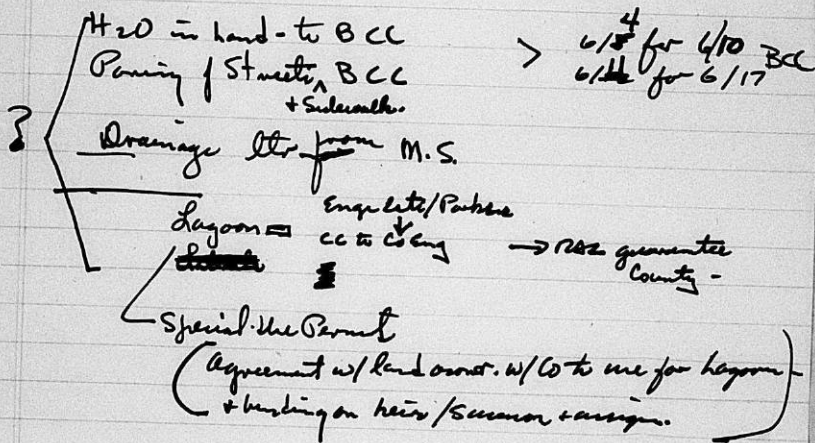 H2O in hand - to BCC > 6/4 for 6/10 BCC
Paving of Streets + Sidewalk. BCC 6/11 for 6/17
Drainage ltr from M.S.
Lagoon = Engr
cc to Co Eng → guarantee County -
Special Use Permit
(Agreement w/ land owner. w/ Co to use for lagoon -
+ binding on heirs / successor + assigns.)